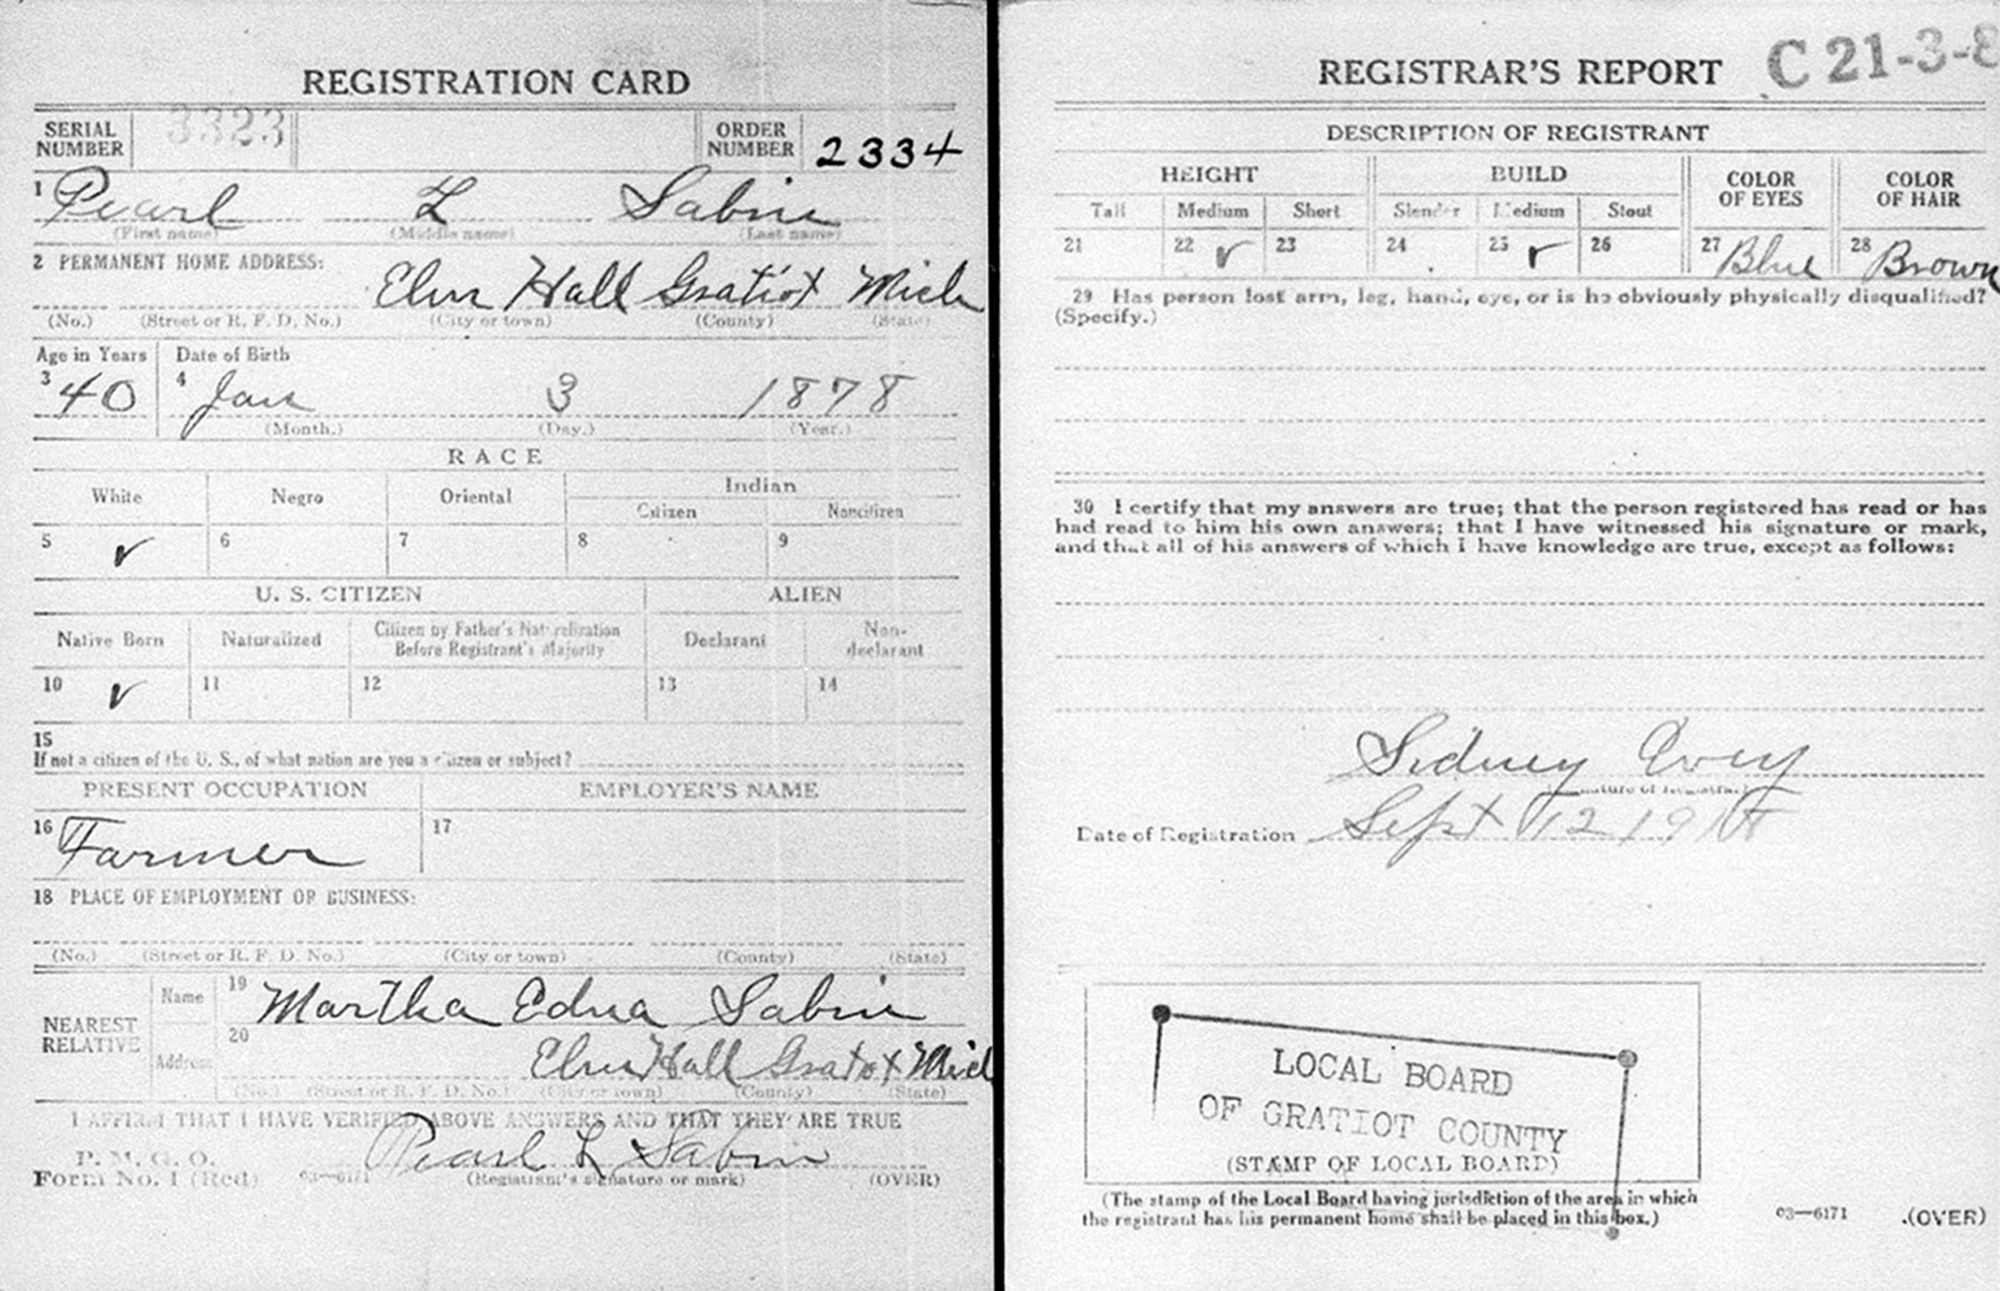 REGISTRATION CARD
SERIAL NUMBER 3323 ORDER NUMBER 2334
1 Pearl L Sabin
(First name) (Middle name) (Last name)
2 PERMANENT HOME ADDRESS:
Elm Hall Gratiot Mich
(No.) (Street or R. F. D. No.) (City or town) (County) (State)
Age in Years Date of Birth
3 40 4 Jan 3 1878
(Month.) (Day.) (Year.)
RACE
White Negro Oriental Indian
Citizen Noncitizen
5 ✓ 6 7 8 9
U. S. CITIZEN ALIEN
Native Born Naturalized Citizen by Father's Naturalization Before Registrant's Majority Declarant Non-declarant
10 ✓ 11 12 13 14
15
If not a citizen of the U. S., of what nation are you a citizen or subject?
PRESENT OCCUPATION EMPLOYER'S NAME
16 Farmer 17
18 PLACE OF EMPLOYMENT OR BUSINESS:
(No.) (Street or R. F. D. No.) (City or town) (County) (State)
NEAREST RELATIVE Name 19 Martha Edna Sabin
Address 20 Elm Hall Gratot Mich
(No.) (Street or R. F. D. No.) (City or town) (County) (State)
I AFFIRM THAT I HAVE VERIFIED ABOVE ANSWERS AND THAT THEY ARE TRUE
P. M. G. O.
Form No. 1 (Red) 03—6171 Pearl L Sabin
(Registrant's signature or mark) (OVER)
REGISTRAR'S REPORT C 21-3-8
DESCRIPTION OF REGISTRANT
HEIGHT BUILD COLOR OF EYES COLOR OF HAIR
Tall Medium Short Slender Medium Stout
21 22 ✓ 23 24 25 ✓ 26 27 Blue 28 Brown
29 Has person lost arm, leg, hand, eye, or is he obviously physically disqualified?
(Specify.)
30 I certify that my answers are true; that the person registered has read or has
had read to him his own answers; that I have witnessed his signature or mark,
and that all of his answers of which I have knowledge are true, except as follows:
Sidney Evey
(Signature of Registrar)
Date of Registration Sept 12 1918
LOCAL BOARD
OF GRATIOT COUNTY
(STAMP OF LOCAL BOARD)
(The stamp of the Local Board having jurisdiction of the area in which
the registrant has his permanent home shall be placed in this box.)
03—6171 (OVER)